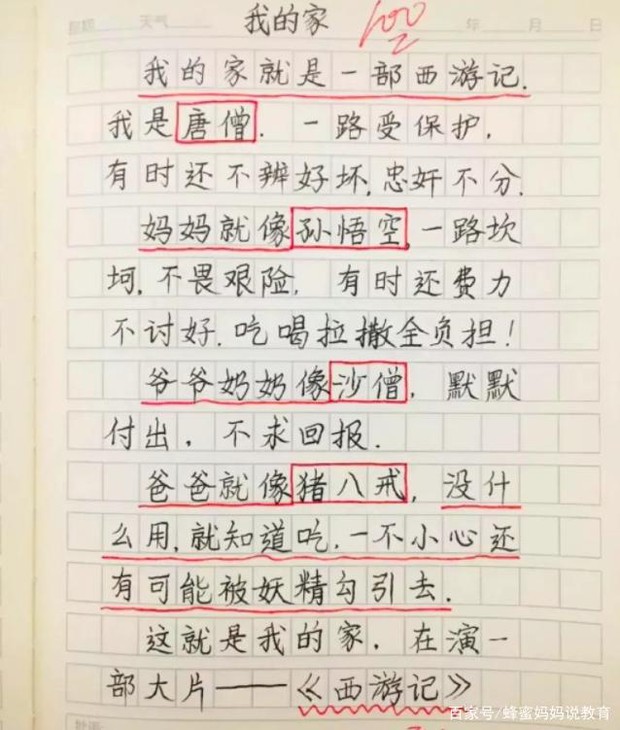 天气 年 月 日
我的家 100
我的家就是一部西游记.
我是唐僧. 一路受保护,
有时还不辨好坏,忠奸不分.
妈妈就像孙悟空,一路坎
坷.不畏艰险, 有时还费力
不讨好.吃喝拉撒全负担!
爷爷奶奶像沙僧, 默默
付出, 不求回报.
爸爸就像猪八戒, 没什
么用,就知道吃.一不小心还
有可能被妖精勾引去.
这就是我的家. 在演一
部大片——《西游记》
百家号/蜂蜜妈妈说教育